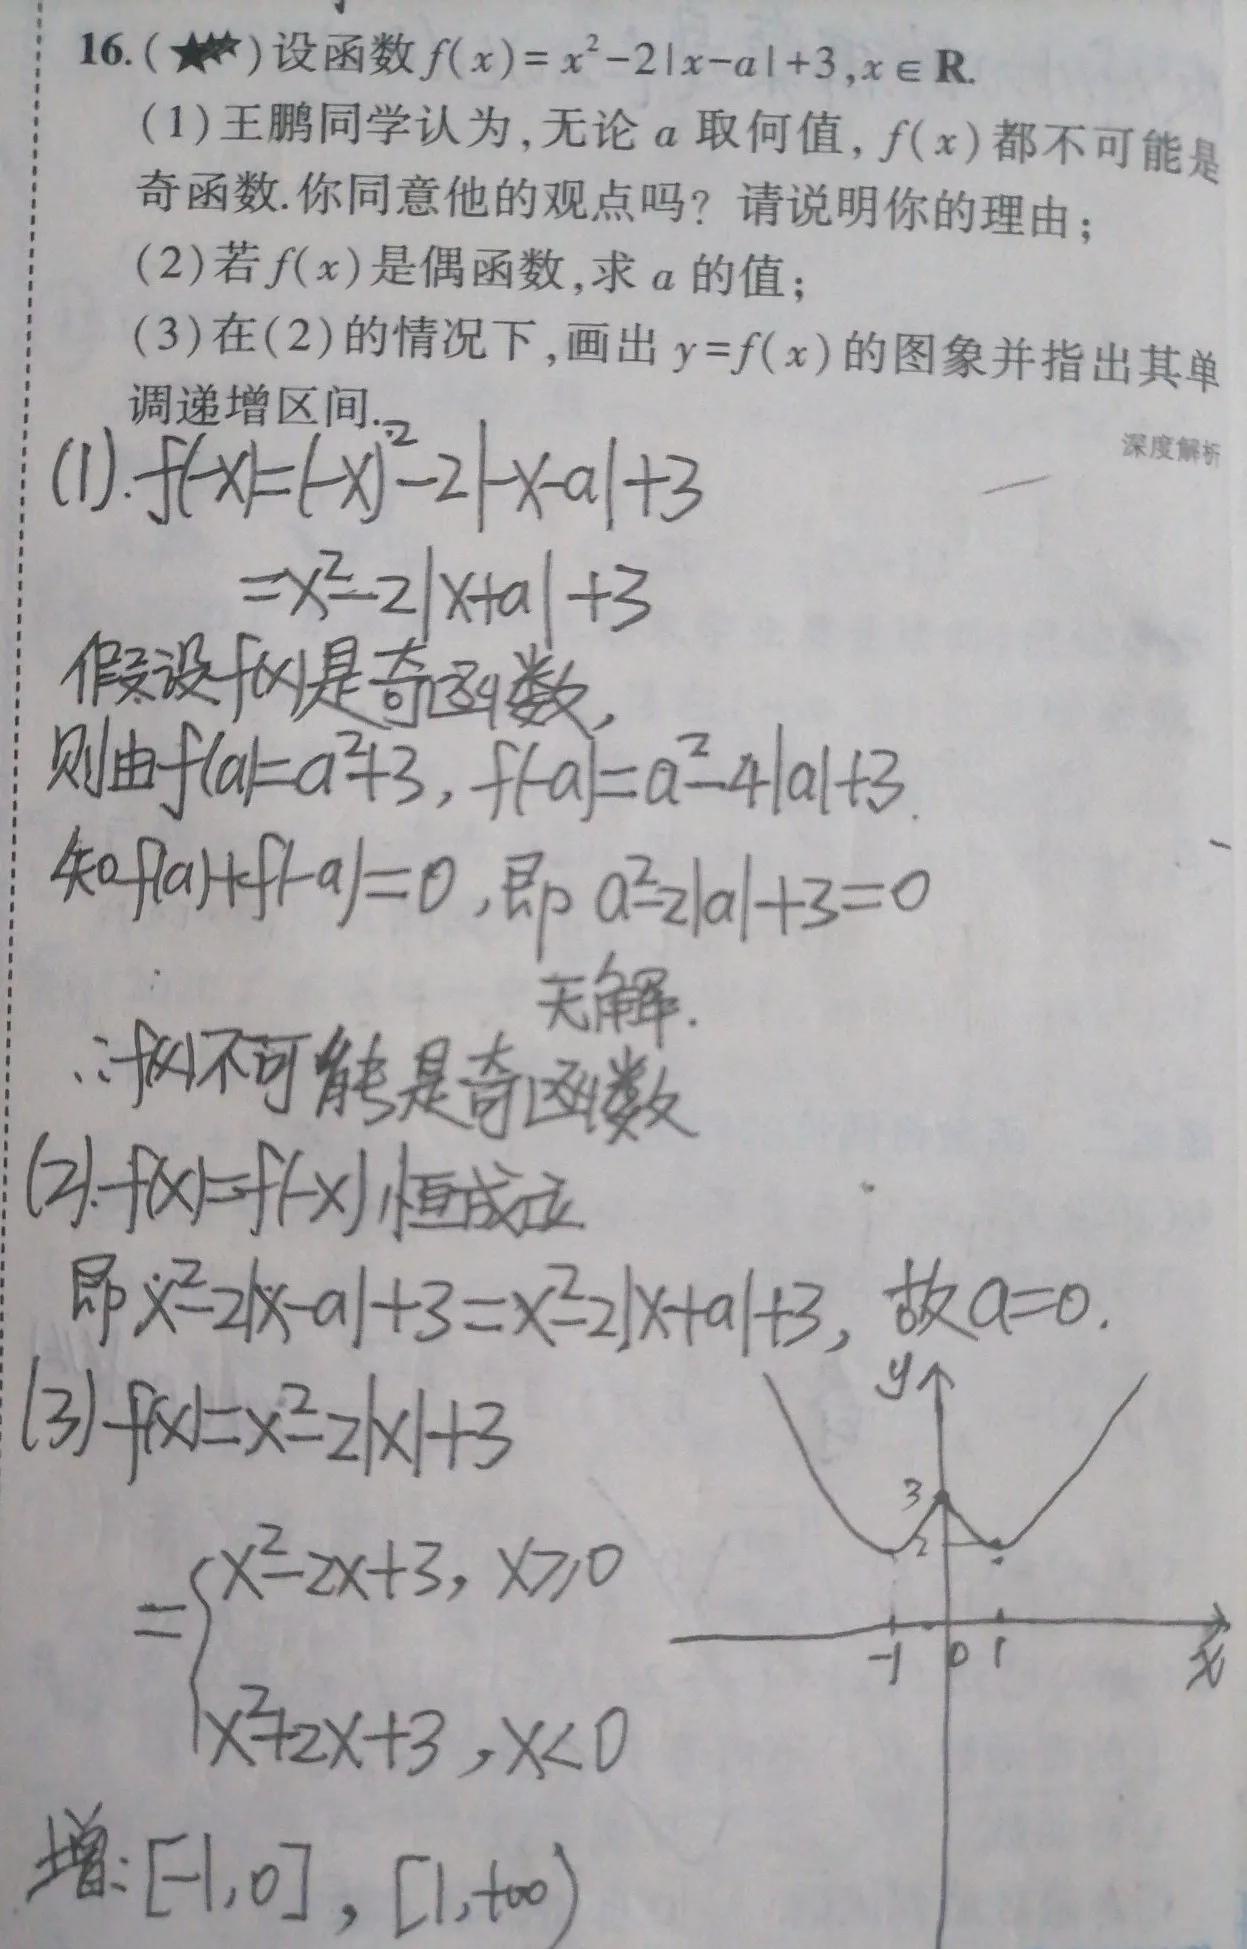 16.(★★★)设函数f(x)=x²-2|x-a|+3,x∈R.
(1)王鹏同学认为,无论a取何值,f(x)都不可能是
奇函数.你同意他的观点吗?请说明你的理由;
(2)若f(x)是偶函数,求a的值;
(3)在(2)的情况下,画出y=f(x)的图象并指出其单
调递增区间.
深度解析
(1).f(-x)=(-x)²-2|-x-a|+3
=x²-2|x+a|+3
假设f(x)是奇函数,
则由f(a)=a²+3,f(-a)=a²-4|a|+3.
知f(a)+f(-a)=0,即a²-2|a|+3=0
无解.
∴f(x)不可能是奇函数
(2).f(x)=f(-x)恒成立
即x²-2|x-a|+3=x²-2|x+a|+3,故a=0.
(3)f(x)=x²-2|x|+3
={x²-2x+3,x≥0
x²+2x+3,x<0
y
3
2
-1 0 1 x
增:[-1,0],[1,+∞)